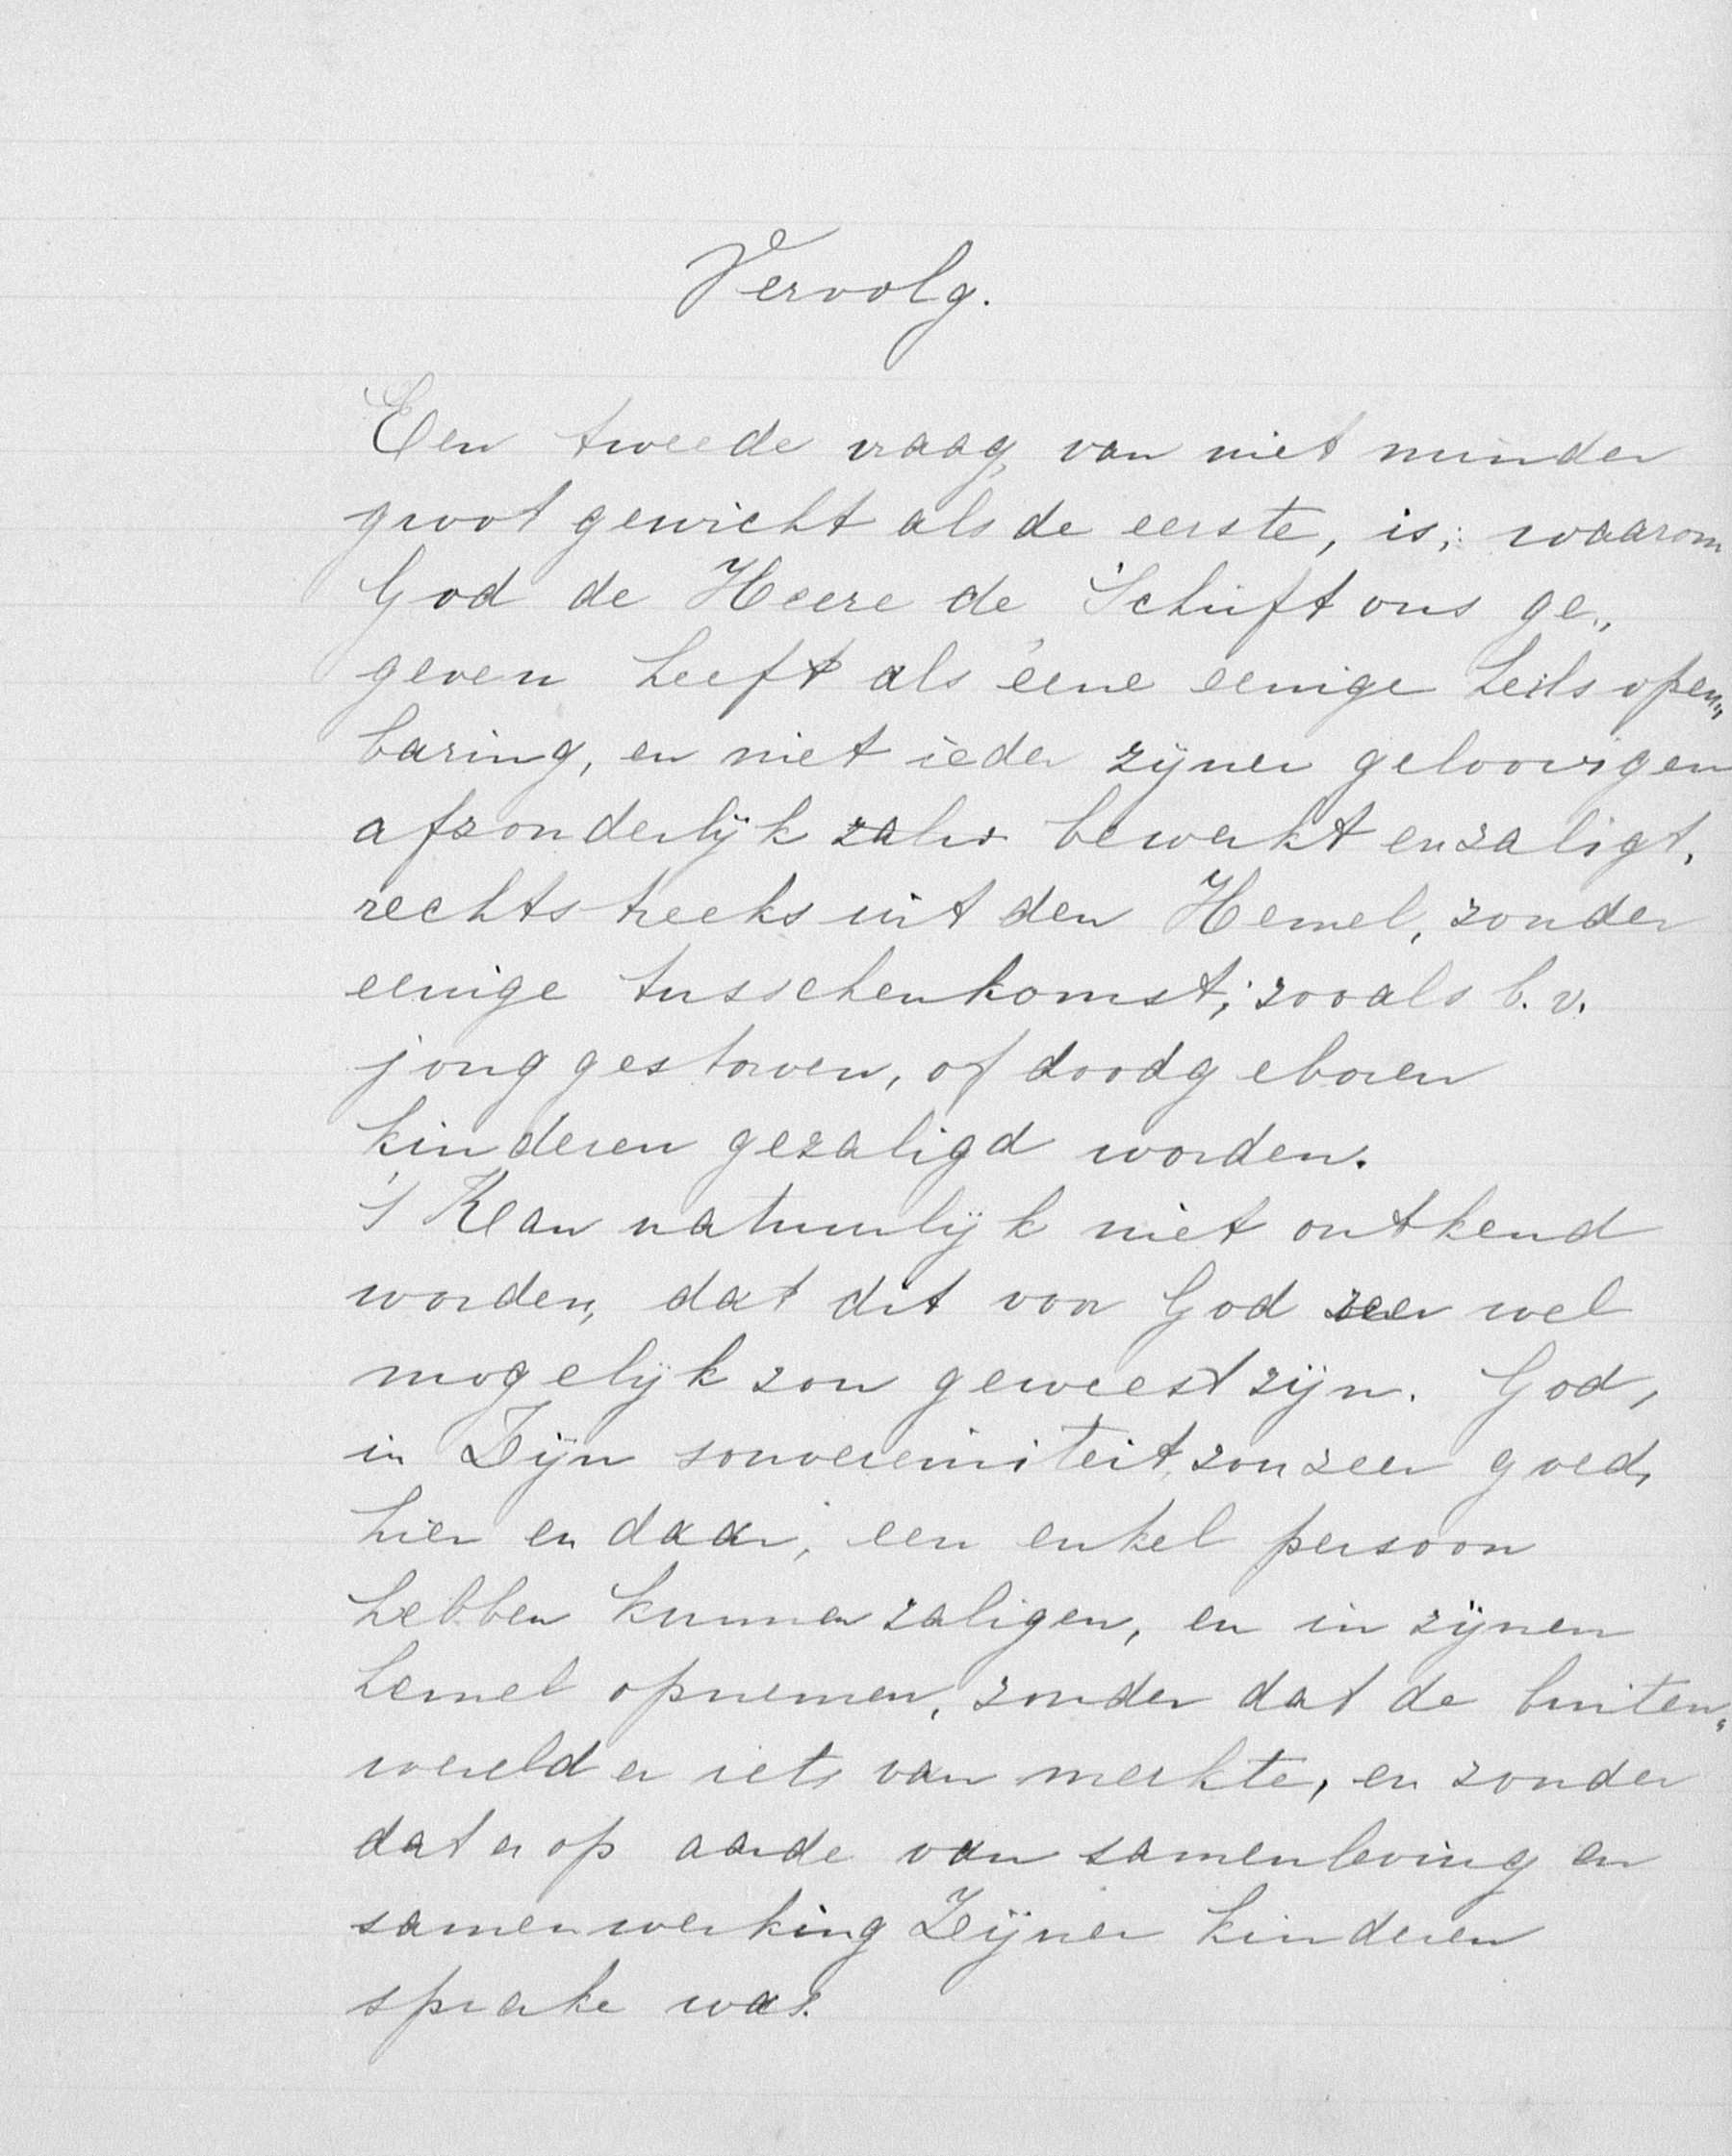 Vervolg.
Een tweede vraag, van niet minder
groot gewicht als de eerste, is; waarom
God de Heere de Schrift ons ge„
geven heeft als ééne eenige heilsopen„
baring, en niet ieder zijner geloovigen
afzonderlijk zalio bewerkt en zaligt,
rechtstreeks uit den Hemel, zonder
eenige tusschenkomst; zooals b.v.
jonggestorven, of doodgeboren
kinderen gezaligd worden.
't Kan natuurlijk niet ontkend
worden, dat dit voor God zeer wel
mogelijk zou geweest zijn. God,
in Zijn souvereiniteit, zou zeer goed,
hier en daar, een enkel persoon
hebben kunnen zaligen, en in zijnen
hemel opnemen, zonder dat de buiten„
wereld er iets van merkte, en zonder
dat er op aarde van samenleving en
samenwerking Zijner kinderen
sprake was.